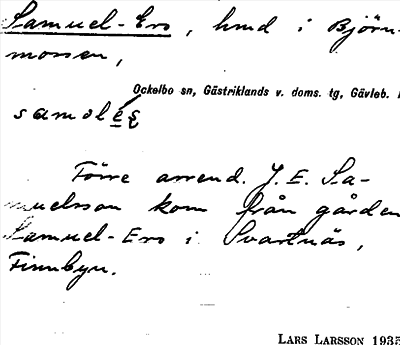 Samuel-Ers, hmd i Björn-
mossen,
Ockelbo sn, Gästriklands v. doms. tg, Gävleb.
samɔlés
Förre arrend. J. E. Sa-
muelsson kom från gården
Samuel-Ers i Svartnäs,
Finnbyn.
LARS LARSSON 1935